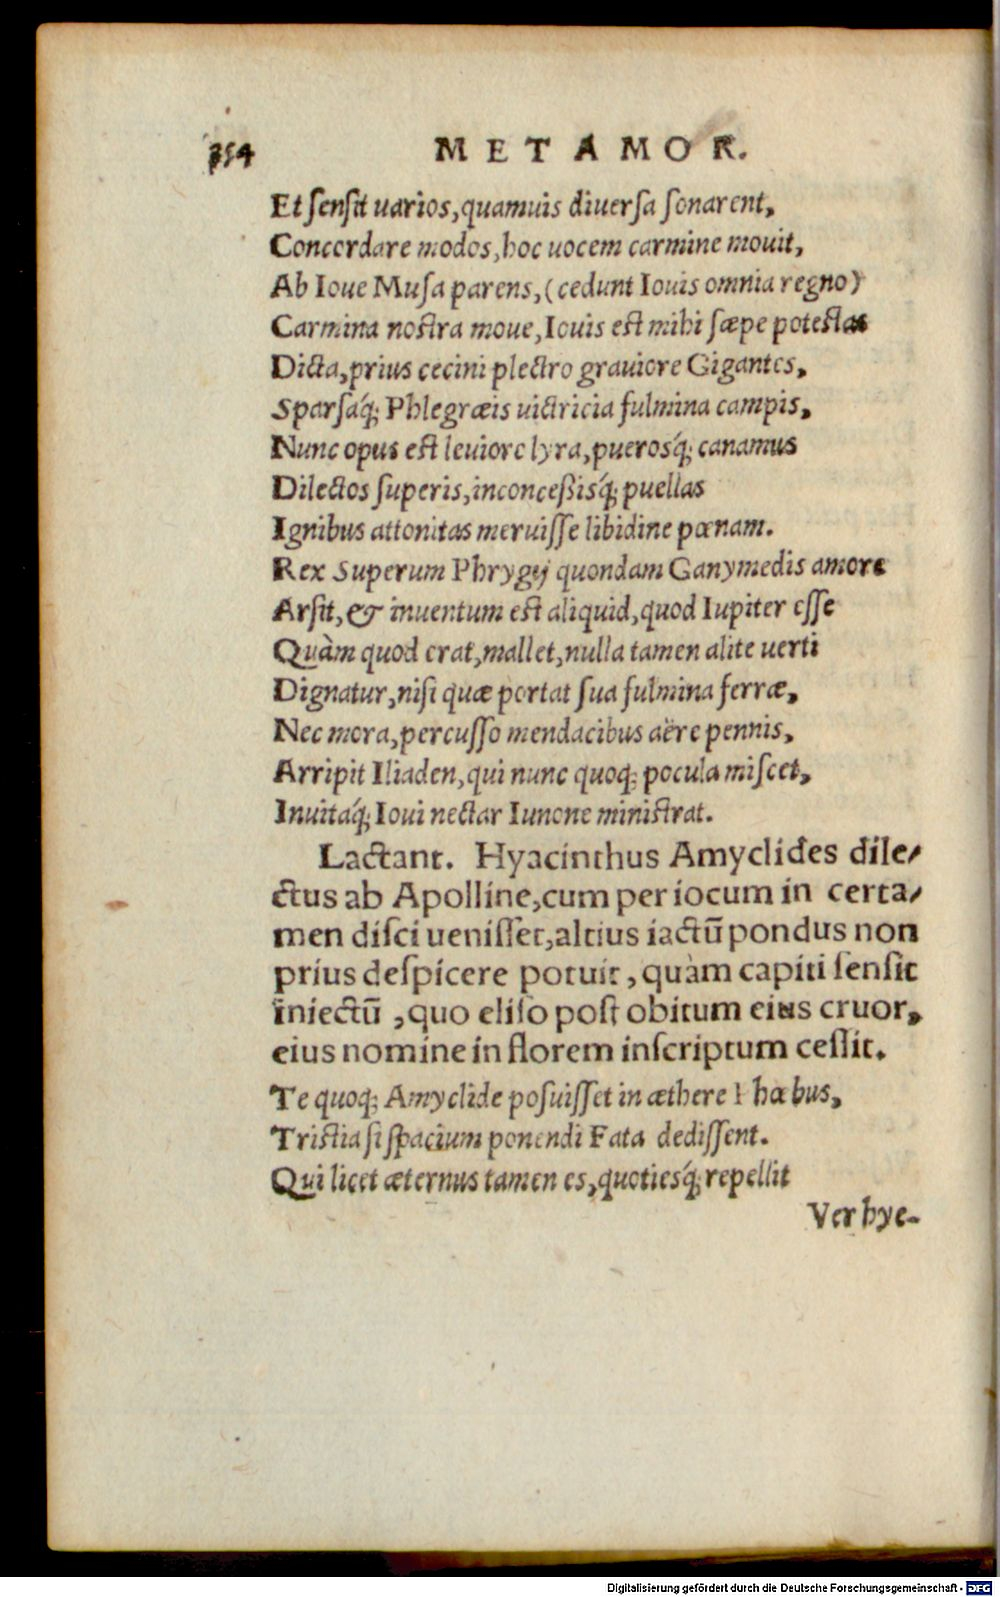 354 METAMOR.
Et sensit uarios, quamuis diuersa sonarent,
Concordare modos, hoc uocem carmine mouit,
Ab Ioue Musa parens, (cedunt Iouis omnia regno)
Carmina nostra moue, Iouis est mihi sæpe potestas
Dicta, prius cecini plectro grauiore Gigantes,
Sparsáq; Phlegræis uictricia fulmina campis,
Nunc opus est leuiore lyra, puerosq́; canamus
Dilectos superis, inconceßisq́; puellas
Ignibus attonitas meruisse libidine pœnam.
Rex Superum Phrygij quondam Ganymedis amore
Arsit, & inuentum est aliquid, quod Iupiter esse
Quàm quod erat, mallet, nulla tamen alite uerti
Dignatur, nisi quæ portat sua fulmina ferræ,
Nec mora, percusso mendacibus aëre pennis,
Arripit Iliaden, qui nunc quoq; pocula miscet,
Inuitáq; Ioui nectar Iunone ministrat.
Lactant. Hyacinthus Amyclides dile/
ctus ab Apolline, cum per iocum in certa/
men disci uenisset, altius iactū pondus non
prius despicere potuit, quàm capiti sensit
iniectū, quo eliso post obitum eius cruor,
eius nomine in florem inscriptum cessit.
Te quoq; Amyclide posuisset in æthere Phœbus,
Tristia si spacium ponendi Fata dedissent.
Qui licet æternus tamen es, quotiesq́; repellit
Ver hye-
Digitalisierung gefördert durch die Deutsche Forschungsgemeinschaft - DFG